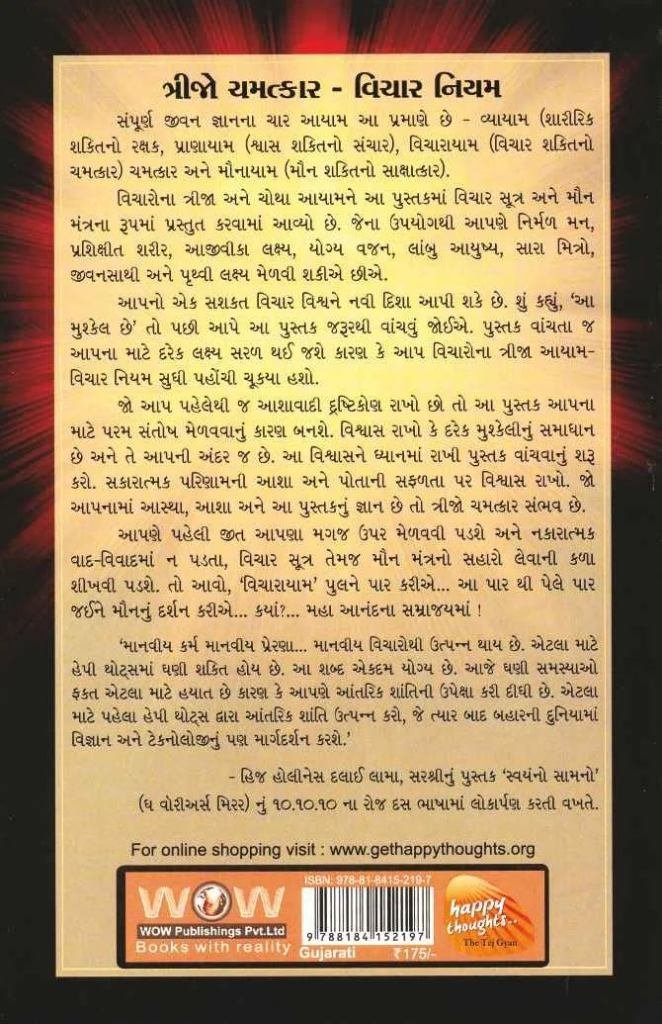 ત્રીજો ચમત્કાર - વિચાર નિયમ
સંપૂર્ણ જીવન જ્ઞાનના ચાર આયામ આ પ્રમાણે છે - વ્યાયામ (શારીરિક
શકિતનો રક્ષક, પ્રાણાયામ (શ્વાસ શકિતનો સંચાર), વિચારાયામ (વિચાર શકિતનો
ચમત્કાર) ચમત્કાર અને મૌનાયામ (મૌન શકિતનો સાક્ષાત્કાર).
વિચારોના ત્રીજા અને ચોથા આયામને આ પુસ્તકમાં વિચાર સૂત્ર અને મૌન
મંત્રના રૂપમાં પ્રસ્તુત કરવામાં આવ્યો છે. જેના ઉપયોગથી આપણે નિર્મળ મન,
પ્રશિક્ષીત શરીર, આજીવીકા લક્ષ્ય, યોગ્ય વજન, લાંબુ આયુષ્ય, સારા મિત્રો,
જીવનસાથી અને પૃથ્વી લક્ષ્ય મેળવી શકીએ છીએ.
આપનો એક સશકત વિચાર વિશ્વને નવી દિશા આપી શકે છે. શું કહ્યું, ‘આ
મુશ્કેલ છે’ તો પછી આપે આ પુસ્તક જરૂરથી વાંચવું જોઈએ. પુસ્તક વાંચતા જ
આપના માટે દરેક લક્ષ્ય સરળ થઈ જશે કારણ કે આપ વિચારોના ત્રીજા આયામ-
વિચાર નિયમ સુધી પહોંચી ચૂકયા હશો.
જો આપ પહેલેથી જ આશાવાદી દ્રષ્ટિકોણ રાખો છો તો આ પુસ્તક આપના
માટે પરમ સંતોષ મેળવવાનું કારણ બનશે. વિશ્વાસ રાખો કે દરેક મુશ્કેલીનું સમાધાન
છે અને તે આપની અંદર જ છે. આ વિશ્વાસને ધ્યાનમાં રાખી પુસ્તક વાંચવાનું શરૂ
કરો. સકારાત્મક પરિણામની આશા અને પોતાની સફળતા પર વિશ્વાસ રાખો. જો
આપનામાં આસ્થા, આશા અને આ પુસ્તકનું જ્ઞાન છે તો ત્રીજો ચમત્કાર સંભવ છે.
આપણે પહેલી જીત આપણા મગજ ઉપર મેળવવી પડશે અને નકારાત્મક
વાદ-વિવાદમાં ન પડતા, વિચાર સૂત્ર તેમજ મૌન મંત્રનો સહારો લેવાની કળા
શીખવી પડશે. તો આવો, ‘વિચારાયામ’ પુલને પાર કરીએ... આ પાર થી પેલે પાર
જઈને મૌનનું દર્શન કરીએ... કયાં?... મહા આનંદના સમ્રાજયમાં !
‘માનવીય કર્મ માનવીય પ્રેરણા... માનવીય વિચારોથી ઉત્પન્ન થાય છે. એટલા માટે
હેપી થોટ્સમાં ઘણી શકિત હોય છે. આ શબ્દ એકદમ યોગ્ય છે. આજે ઘણી સમસ્યાઓ
ફકત એટલા માટે હયાત છે કારણ કે આપણે આંતરિક શાંતિની ઉપેક્ષા કરી દીધી છે. એટલા
માટે પહેલા હેપી થોટ્સ દ્વારા આંતરિક શાંતિ ઉત્પન્ન કરો, જે ત્યાર બાદ બહારની દુનિયામાં
વિજ્ઞાન અને ટેકનોલોજીનું પણ માર્ગદર્શન કરશે.’
- હિજ હોલીનેસ દલાઈ લામા, સરશ્રીનું પુસ્તક ‘સ્વયંનો સામનો’
(ધ વોરીઅર્સ મિરર) નું ૧૦.૧૦.૧૦ ના રોજ દસ ભાષામાં લોકાર્પણ કરતી વખતે.
For online shopping visit : www.gethappythoughts.org
WOW
WOW Publishings Pvt.Ltd
Books with reality
ISBN: 978-81-8415-219-7
9 788184 152197
Gujarati ₹175/-
happy
thoughts..
The Tej Gyan